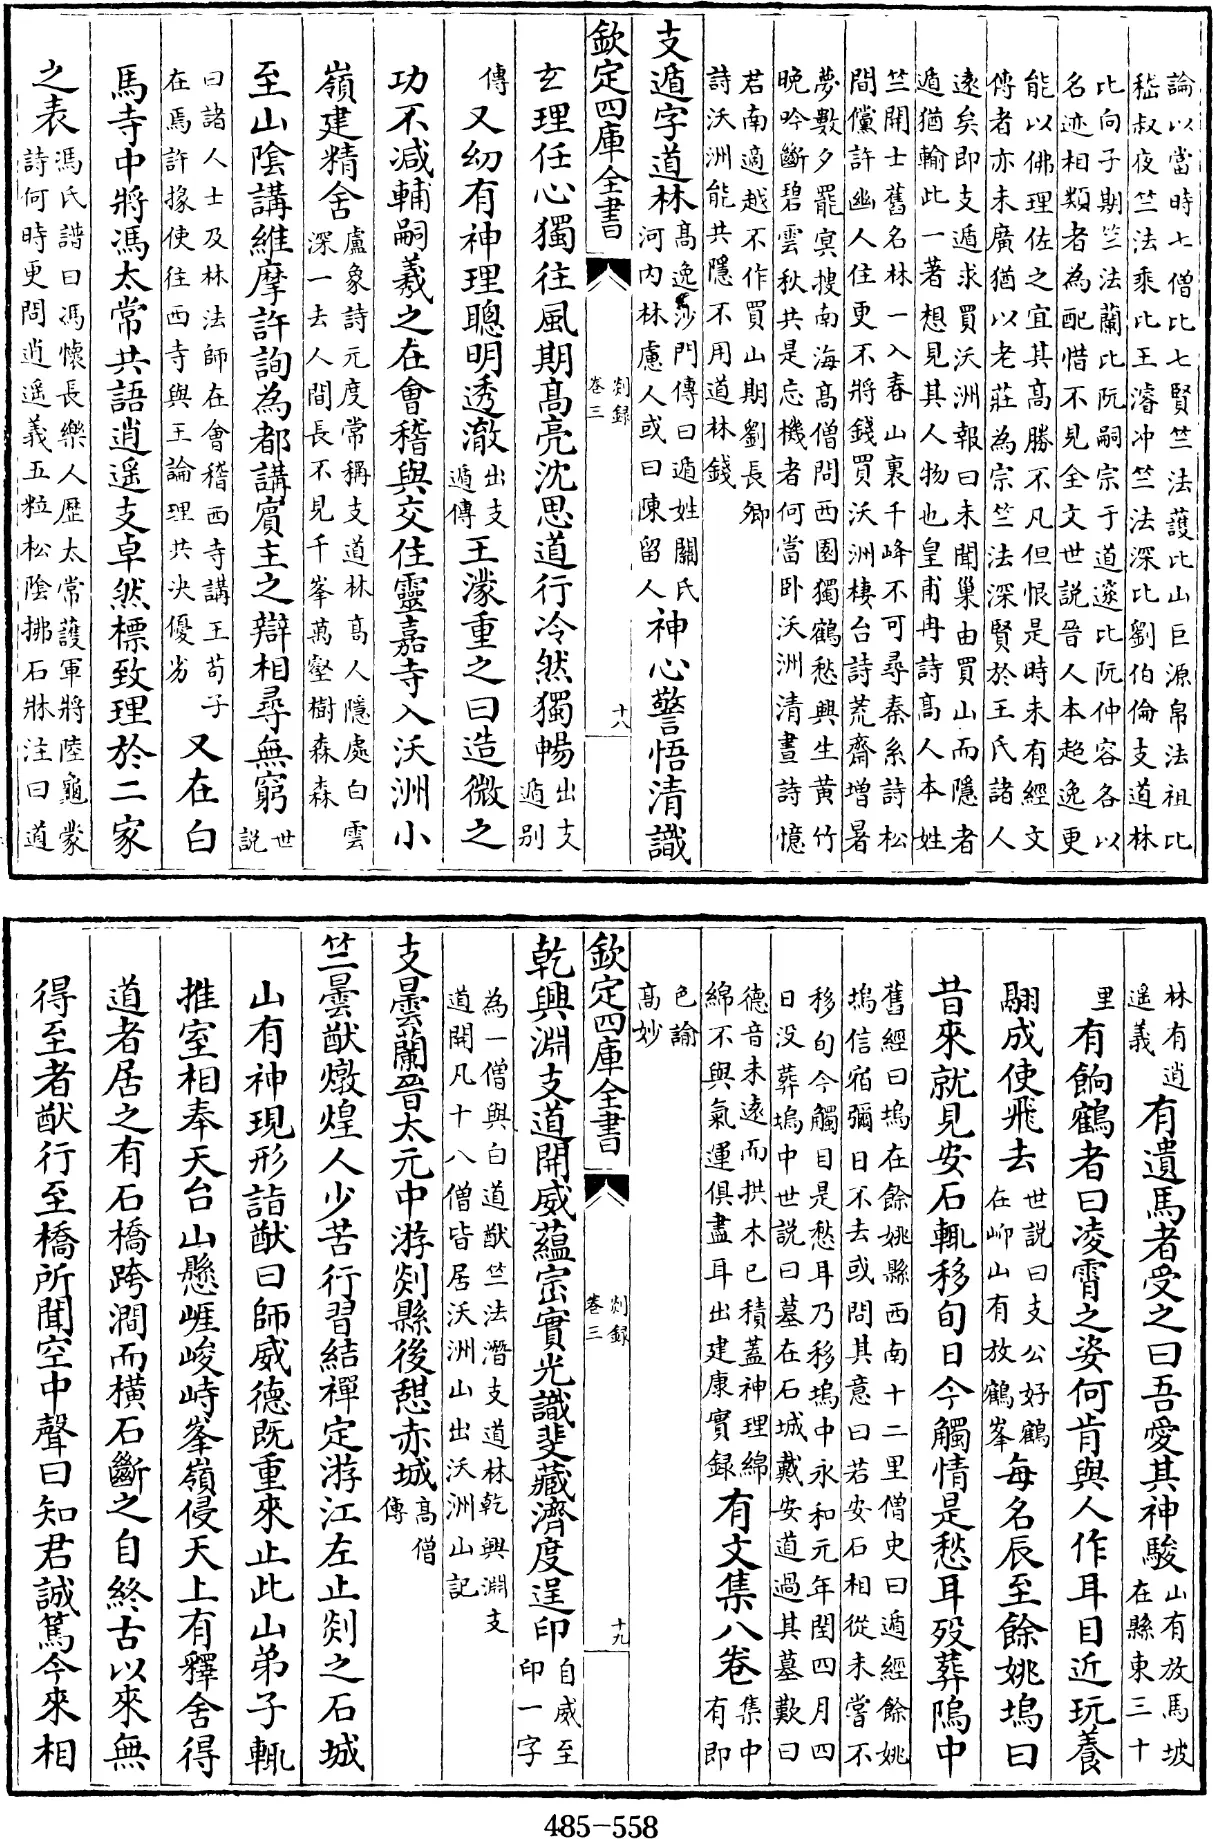 論以當時七僧比七賢竺法護比山巨源帛法祖比
嵇叔夜竺法乘比王濬冲竺法深比劉伯倫支道林
比向子期竺法蘭比阮嗣宗于道邃比阮仲容各以
名迹相類者為配惜不見全文世説晉人本超逸更
能以佛理佐之宜其高勝不凡但恨是時未有經文
傳者亦未廣猶以老莊為宗竺法深賢於王氏諸人
遠矣即支遁求買沃洲報曰未聞巢由買山而隱者
遁猶輸此一著想見其人物也皇甫冉詩高人本姓
竺開士舊名林一入春山裏千峰不可尋秦系詩松
間儻許幽人住更不將錢買沃洲棲台詩荒齋增暑
夢數夕罷冥搜南海高僧問西園獨鶴愁興生黄竹
晩吟斷碧雲秋共是忘機者何當卧沃洲清晝詩憶
君南適越不作買山期劉長卿
詩沃洲能共隱不用道林錢
支遁字道林高逸沙門傳曰遁姓關氏
河内林慮人或曰陳留人神心警悟清識
欽定四庫全書
剡録
卷三
十八
玄理任心獨往風期髙亮沈思道行冷然獨暢出支
遁别
傳又㓜有神理聰明透澈出支
遁傳王濛重之曰造微之
功不减輔嗣羲之在會稽與交住靈嘉寺入沃洲小
嶺建精舍盧象詩元度常稱支道林高人隱處白雲
深一去人間長不見千峯萬壑樹森森
至山陰講維摩許詢為都講賓主之辯相尋無窮世
説
曰諸人士及林法師在會稽西寺講王苟子
在焉許掾使往西寺與王論理共决優劣又在白
馬寺中將馮太常共語逍遥支卓然標致理於二家
之表馮氏譜曰馮懷長樂人歴太常護軍將陸龜蒙
詩何時更問逍遥義五粒松陰拂石牀注曰道
林有逍
遥義有遺馬者受之曰吾愛其神駿山有放馬坡
在縣東三十
里有餉鶴者曰凌霄之姿何肯與人作耳目近玩養
翮成使飛去世説曰支公好鶴
在岇山有放鶴峯每名辰至餘姚塢曰
昔來就見安石輒移旬日今觸情是愁耳殁葬隖中
舊經曰塢在餘姚縣西南十二里僧史曰遁經餘姚
塢信宿彌日不去或問其意曰若安石相從未嘗不
移旬今觸目是愁耳乃移塢中永和元年閏四月四
日没葬塢中世説曰墓在石城戴安道過其墓歎曰
德音未遠而拱木已積蓋神理綿
綿不與氣運俱盡耳出建康實録有文集八巻集中
有即
色論
高妙
欽定四庫全書
剡録
卷三
十九
乾興淵支道開威蘊崇實光識斐藏濟度逞印自威至
印一字
為一僧與白道猷竺法潛支道林乾興淵支
道開凡十八僧皆居沃洲山出沃洲山記
支曇蘭晉太元中游剡縣後憇赤城高僧
傳
竺曇猷燉煌人少苦行習結禪定游江左止剡之石城
山有神現形詣猷曰師威德既重來止此山弟子輒
推室相奉天台山懸崕峻峙峯嶺侵天上有釋舍得
道者居之有石橋跨澗而横石斷之自終古以來無
得至者猷行至橋所聞空中聲曰知君誠篤今來相
485-558